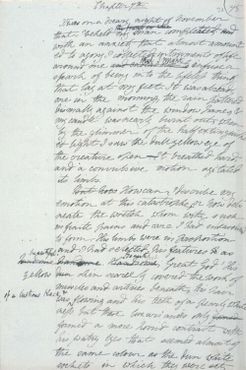 Chapter 7th
It was on a dreary night of November
that I beheld my man completed; and
with an anxiety that almost amounted
to agony, I collected instruments of life
around me that I might infuse a
spark of being into the lifeless thing
that lay at my feet. It was already
one in the morning, the rain pattered
dismally against the window panes, &
my candle was nearly burnt out, when
by the glimmer of the half extinguish-
ed light I saw the dull yellow eye of
the creature open It breathed hard,
and a convulsive motion agitated
its limbs.
But how How can I describe my
emotion at this catastrophe; or how deli-
neate the wretch whom with such
infinite pains and care I had endeavoured
to form. His limbs were in proportion
and I had selected his features as
beautiful
handsome Great God! His
yellow skin scarcely covered the work of
muscles and arteries beneath; his hair
of a lustrous black &
was flowing and his teeth of a pearly white
ness but these luxuriances only
formed a more horrid contrast with
his watry eyes that seemed almost of
the same colour as the dun white
sockets in which they were set